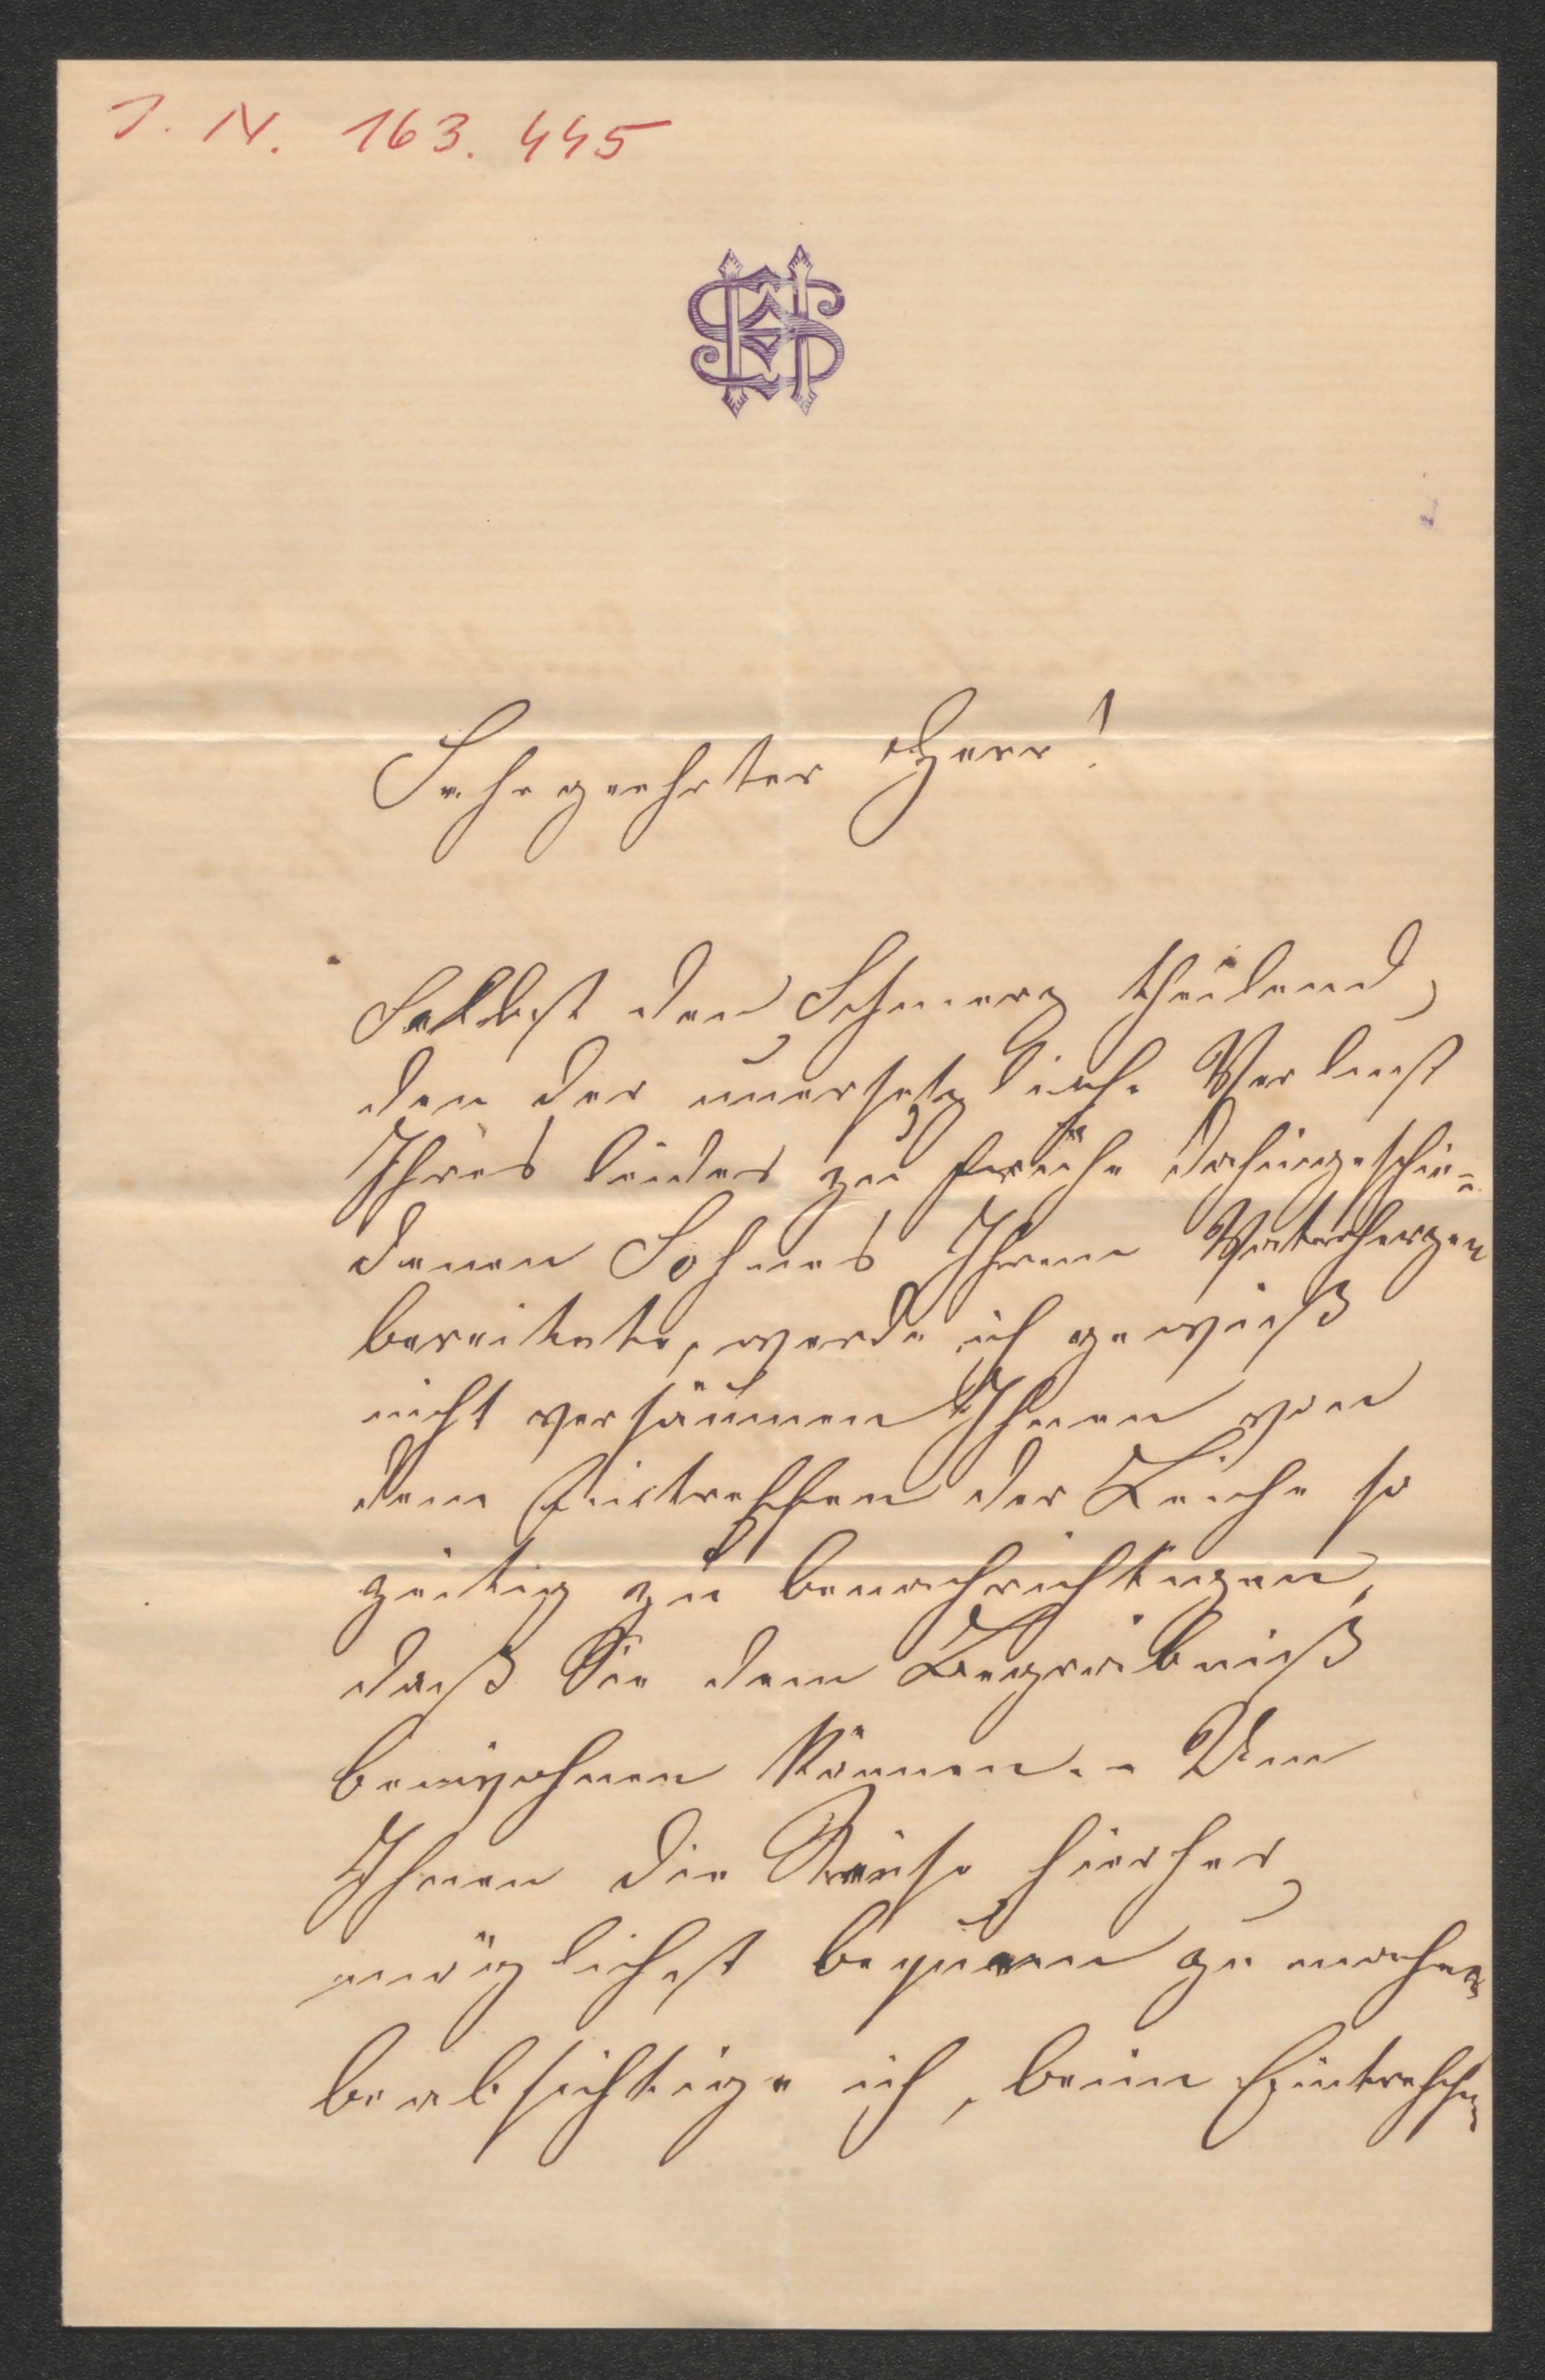 I. N. 163.445
Sehr geehrter Herr!
Selbst den Schmerz theilend,
den der unersetzliche Verlust
Ihres leider zu frühe dahingeschie-
denen Sohnes Ihrem Vaterherzen
bereitete, werde ich gewiß
nicht versäumen Ihnen von
dem Eintreffen der Leiche so
zeitig zu benachrichtigen,
daß Sie dem Begräbniß
beiwohnen können. - Um
Ihnen die Reise hierher
möglichst bequem zu machen
beabsichtige ich, beim Eintreffen